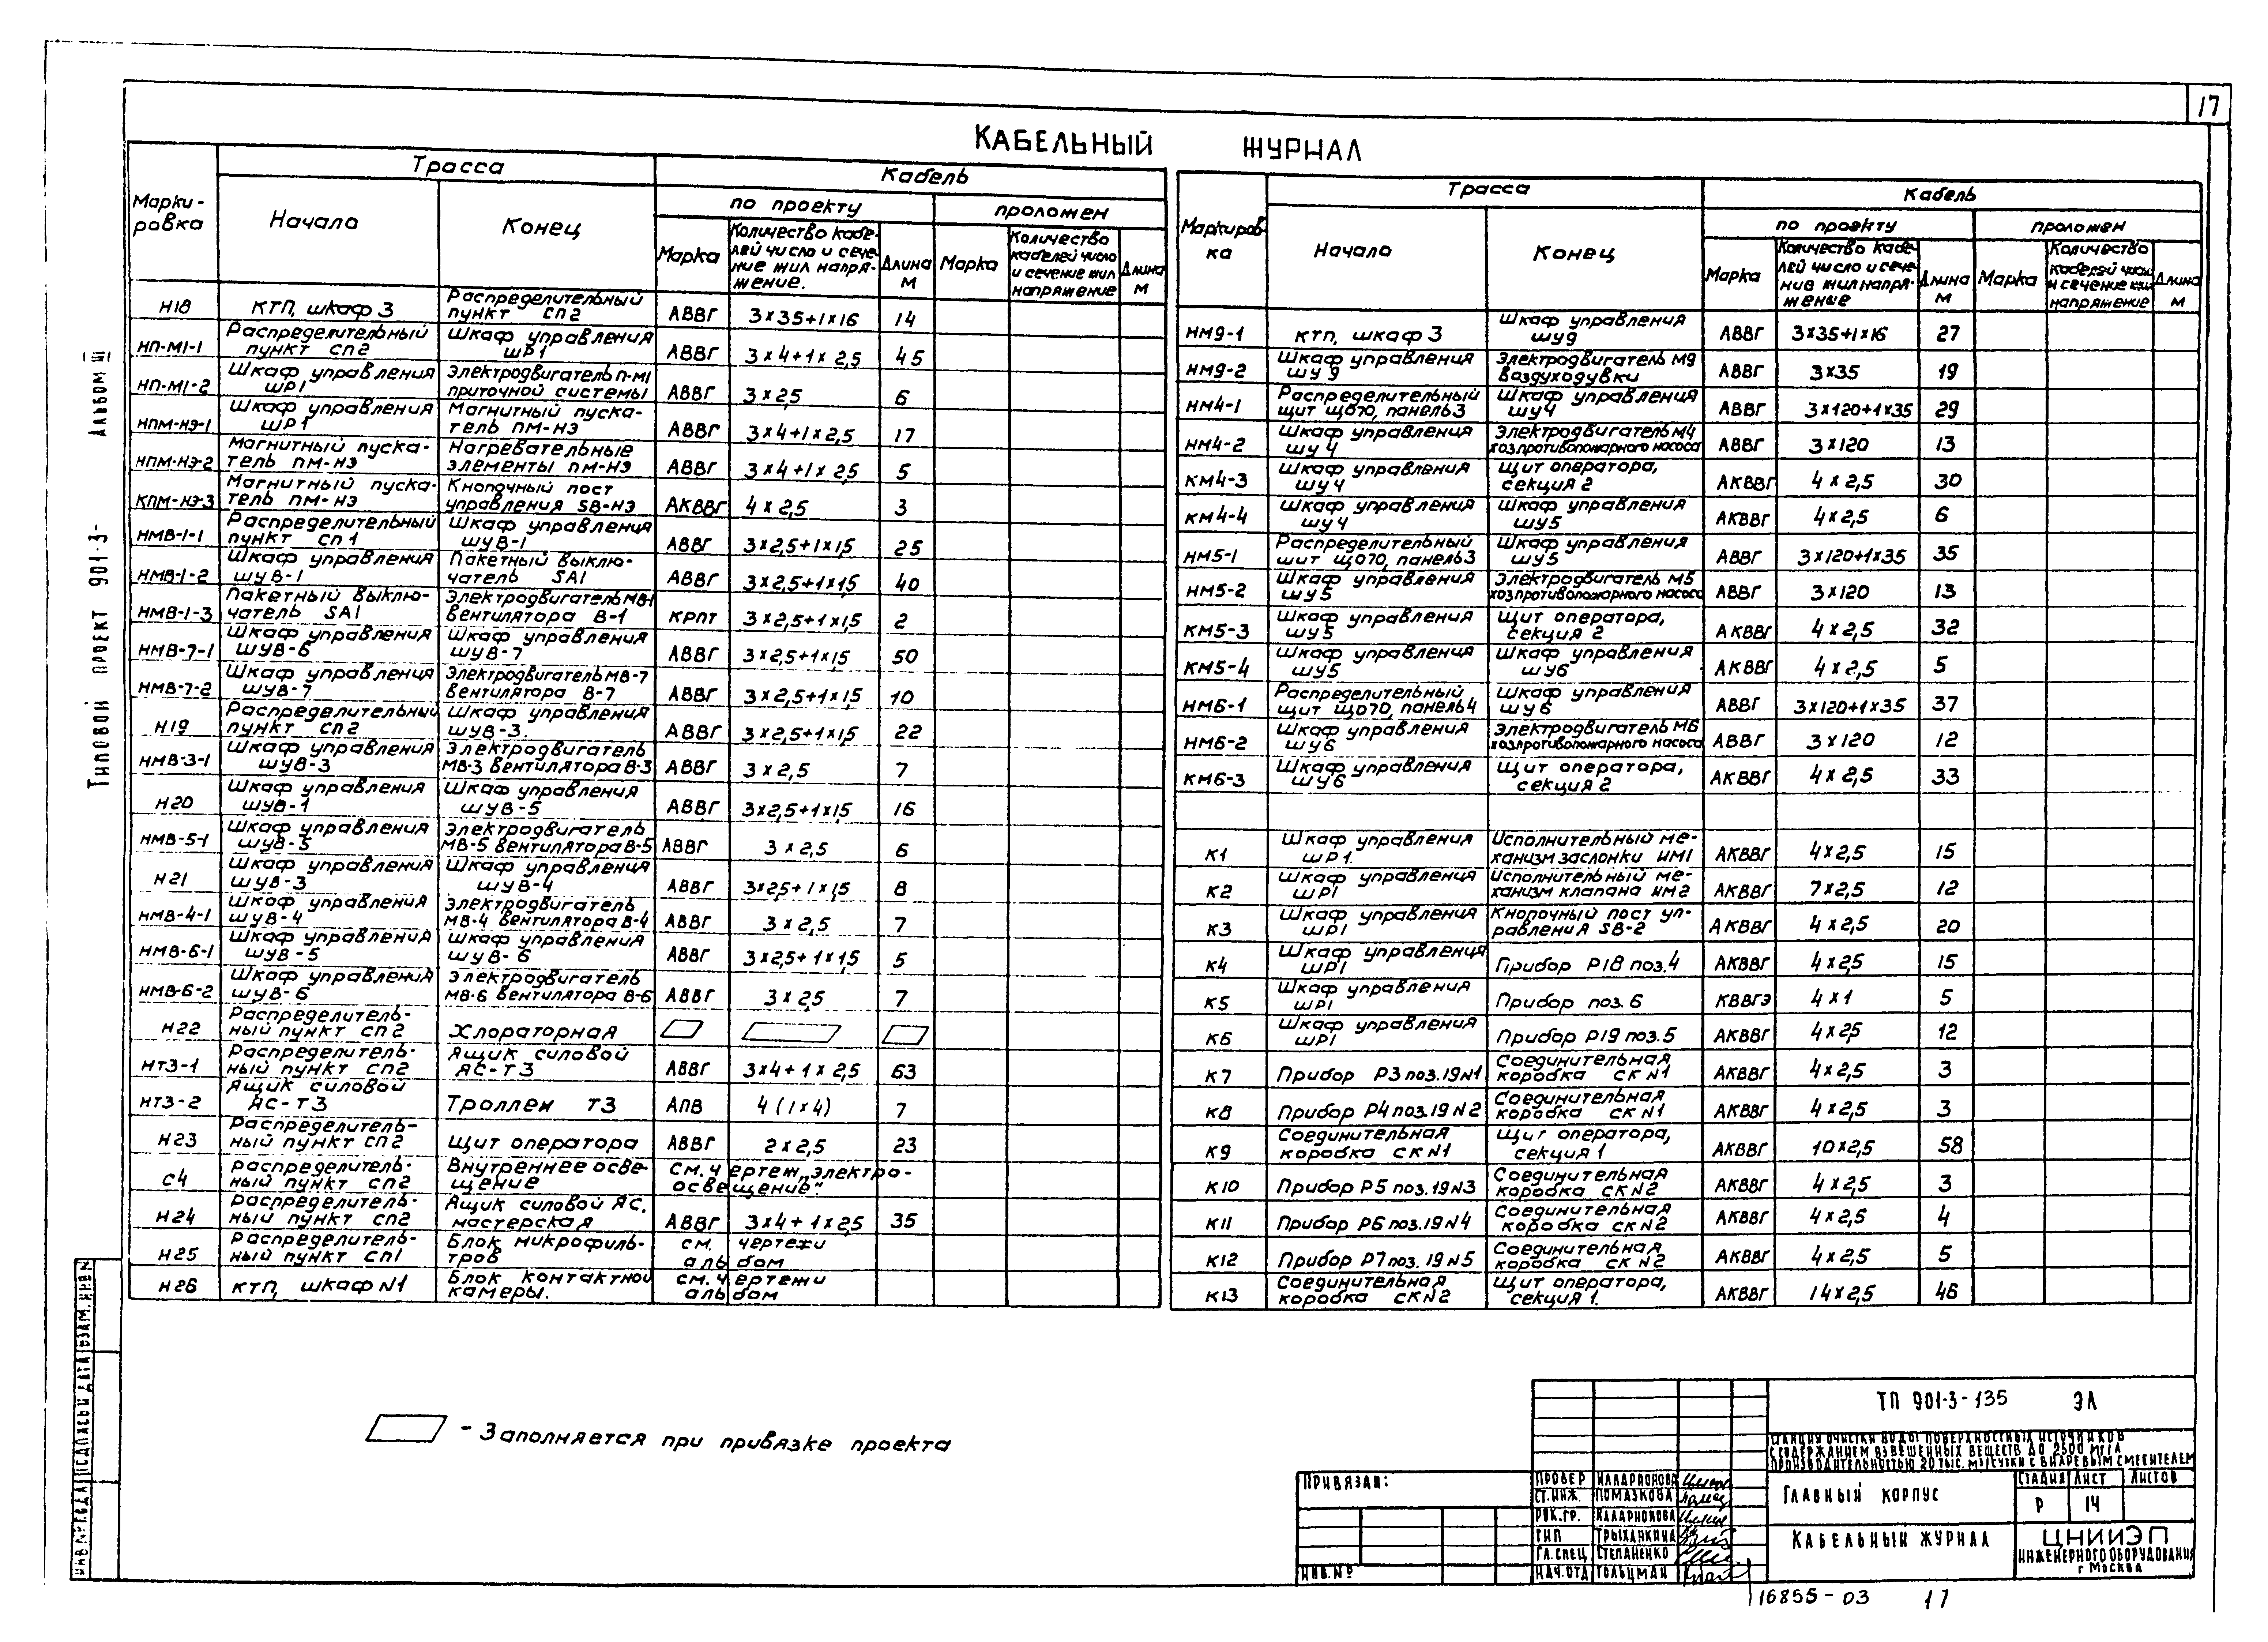 17
КАБЕЛЬНЫЙ ЖУРНАЛ
Марки-ровка | Трасса | Кабель
Начало | Конец | по проекту | проложен
Марка | Количество кабе-лей число и сече-ние жил напря-жение. | Длина м | Марка | Количество кабелей число и сечение жил напряжение | Длина м
Н18 | КТП, шкаф 3 | Распределительный пункт СП2 | АВВГ | 3×35+1×16 | 14
НП-М1-1 | Распределительный пункт СП2 | Шкаф управления ШР1 | АВВГ | 3×4+1×2,5 | 45
НП-М1-2 | Шкаф управления ШР1 | Электродвигатель П-М1 приточной системы | АВВГ | 3×2,5 | 6
НПМ-НЭ-1 | Шкаф управления ШР1 | Магнитный пуска-тель ПМ-НЭ | АВВГ | 3×4+1×2,5 | 17
НПМ-НЭ-2 | Магнитный пуска-тель ПМ-НЭ | Нагревательные элементы ПМ-НЭ | АВВГ | 3×4+1×2,5 | 5
КПМ-НЭ-3 | Магнитный пуска-тель ПМ-НЭ | Кнопочный пост управления SB-НЭ | АКВВГ | 4×2,5 | 3
НМВ-1-1 | Распределительный пункт СП1 | Шкаф управления ШУВ-1 | АВВГ | 3×2,5+1×1,5 | 25
НМВ-1-2 | Шкаф управления ШУВ-1 | Пакетный выклю-чатель SA1 | АВВГ | 3×2,5+1×1,5 | 40
НМВ-1-3 | Пакетный выклю-чатель SA1 | Электродвигатель МВ-1 вентилятора В-1 | КРПТ | 3×2,5+1×1,5 | 2
НМВ-7-1 | Шкаф управления ШУВ-6 | Шкаф управления ШУВ-7 | АВВГ | 3×2,5+1×1,5 | 50
НМВ-7-2 | Шкаф управления ШУВ-7 | Электродвигатель МВ-7 вентилятора В-7 | АВВГ | 3×2,5+1×1,5 | 10
Н19 | Распределительный пункт СП2 | Шкаф управления ШУВ-3. | АВВГ | 3×2,5+1×1,5 | 22
НМВ-3-1 | Шкаф управления ШУВ-3 | Электродвигатель МВ-3 вентилятора В-3 | АВВГ | 3×2,5 | 7
Н20 | Шкаф управления ШУВ-1 | Шкаф управления ШУВ-5 | АВВГ | 3×2,5+1×1,5 | 16
НМВ-5-1 | Шкаф управления ШУВ-5 | Электродвигатель МВ-5 вентилятора В-5 | АВВГ | 3×2,5 | 6
Н21 | Шкаф управления ШУВ-3 | Шкаф управления ШУВ-4 | АВВГ | 3×2,5+1×1,5 | 8
НМВ-4-1 | Шкаф управления ШУВ-4 | Электродвигатель МВ-4 вентилятора В-4 | АВВГ | 3×2,5 | 7
НМВ-6-1 | Шкаф управления ШУВ-5 | Шкаф управления ШУВ-6 | АВВГ | 3×2,5+1×1,5 | 5
НМВ-6-2 | Шкаф управления ШУВ-6 | Электродвигатель МВ-6 вентилятора В-6 | АВВГ | 3×2,5 | 7
Н22 | Распределитель-ный пункт СП2 | Хлораторная
НТ3-1 | Распределитель-ный пункт СП2 | Ящик силовой ЯС-Т3 | АВВГ | 3×4+1×2,5 | 63
НТ3-2 | Ящик силовой ЯС-Т3 | Троллеи Т3 | АПВ | 4(1×4) | 7
Н23 | Распределитель-ный пункт СП2 | Щит оператора | АВВГ | 2×2,5 | 23
С4 | Распределитель-ный пункт СП2 | Внутреннее осве-щение | см. чертеж „электро-освещение".
Н24 | Распределитель-ный пункт СП2 | Ящик силовой ЯС, мастерская | АВВГ | 3×4+1×2,5 | 35
Н25 | Распределитель-ный пункт СП1 | Блок микрофиль-тров | см. чертежи альбом
Н26 | КТП, шкаф N1 | Блок контактной камеры. | см. чертежи альбом
Маркиров-ка | Трасса | Кабель
Начало | Конец | по проекту | проложен
Марка | Количество кабе-лей число и сече-ние жил напря-жение | Длина м | Марка | Количество кабелей число и сечение жил напряжение | Длина м
НМ9-1 | КТП, шкаф 3 | Шкаф управления ШУ9 | АВВГ | 3×35+1×16 | 27
НМ9-2 | Шкаф управления ШУ9 | Электродвигатель М9 воздуходувки | АВВГ | 3×35 | 19
НМ4-1 | Распределительный щит ЩО70, панель 3 | Шкаф управления ШУ4 | АВВГ | 3×120+1×35 | 29
НМ4-2 | Шкаф управления ШУ4 | Электродвигатель М4 хозпротивопожарного насоса | АВВГ | 3×120 | 13
КМ4-3 | Шкаф управления ШУ4 | Щит оператора, секция 2 | АКВВГ | 4×2,5 | 30
КМ4-4 | Шкаф управления ШУ4 | Шкаф управления ШУ5 | АКВВГ | 4×2,5 | 6
НМ5-1 | Распределительный щит ЩО70, панель 3 | Шкаф управления ШУ5 | АВВГ | 3×120+1×35 | 35
НМ5-2 | Шкаф управления ШУ5 | Электродвигатель М5 хозпротивопожарного насоса | АВВГ | 3×120 | 13
КМ5-3 | Шкаф управления ШУ5 | Щит оператора, секция 2 | АКВВГ | 4×2,5 | 32
КМ5-4 | Шкаф управления ШУ5 | Шкаф управления ШУ6 | АКВВГ | 4×2,5 | 5
НМ6-1 | Распределительный щит ЩО70, панель 4 | Шкаф управления ШУ6 | АВВГ | 3×120+1×35 | 37
НМ6-2 | Шкаф управления ШУ6 | Электродвигатель М6 хозпротивопожарного насоса | АВВГ | 3×120 | 12
КМ6-3 | Шкаф управления ШУ6 | Щит оператора, секция 2 | АКВВГ | 4×2,5 | 33
К1 | Шкаф управления ШР1. | Исполнительный ме-ханизм заслонки ИМ1 | АКВВГ | 4×2,5 | 15
К2 | Шкаф управления ШР1 | Исполнительный ме-ханизм клапана ИМ2 | АКВВГ | 7×2,5 | 12
К3 | Шкаф управления ШР1 | Кнопочный пост уп-равления SB-2 | АКВВГ | 4×2,5 | 20
К4 | Шкаф управления ШР1 | Прибор Р18 поз.4 | АКВВГ | 4×2,5 | 15
К5 | Шкаф управления ШР1 | Прибор поз.6 | КВВГЭ | 4×1 | 5
К6 | Шкаф управления ШР1 | Прибор Р19 поз.5 | АКВВГ | 4×2,5 | 12
К7 | Прибор Р3 поз.19 N1 | Соединительная коробка СК N1 | АКВВГ | 4×2,5 | 3
К8 | Прибор Р4 поз.19 N2 | Соединительная коробка СК N1 | АКВВГ | 4×2,5 | 3
К9 | Соединительная коробка СК N1 | Щит оператора, секция 1 | АКВВГ | 10×2,5 | 58
К10 | Прибор Р5 поз.19 N3 | Соединительная коробка СК N2 | АКВВГ | 4×2,5 | 3
К11 | Прибор Р6 поз.19 N4 | Соединительная коробка СК N2 | АКВВГ | 4×2,5 | 4
К12 | Прибор Р7 поз.19 N5 | Соединительная коробка СК N2 | АКВВГ | 4×2,5 | 5
К13 | Соединительная коробка СК N2 | Щит оператора, секция 1. | АКВВГ | 14×2,5 | 46
- Заполняется при привязке проекта
ТИПОВОЙ ПРОЕКТ 901-3- АЛЬБОМ III
ИНВ.№ ПОДЛ ПОДПИСЬ И ДАТА ВЗАМ.ИНВ.№
ПРИВЯЗАН:
ИНВ.№
ПРОВЕР ИЛЛАРИОНОВА
СТ.ИНЖ. ПОМАЗКОВА
РУК.ГР. ИЛЛАРИОНОВА
ГИП ТРЫХАНКИНА
ГЛ.СПЕЦ СТЕПАНЕНКО
НАЧ.ОТД ГОЛЬЦМАН
ТП 901-3-135 ЭЛ
СТАНЦИЯ ОЧИСТКИ ВОДЫ ПОВЕРХНОСТНЫХ ИСТОЧНИКОВ
С СОДЕРЖАНИЕМ ВЗВЕШЕННЫХ ВЕЩЕСТВ ДО 2500 МГ/Л
ПРОИЗВОДИТЕЛЬНОСТЬЮ 20 ТЫС. М3/СУТКИ С ВИХРЕВЫМ СМЕСИТЕЛЕМ
ГЛАВНЫЙ КОРПУС
СТАДИЯ ЛИСТ ЛИСТОВ
Р 14
КАБЕЛЬНЫЙ ЖУРНАЛ
ЦНИИЭП
ИНЖЕНЕРНОГО ОБОРУДОВАНИЯ
г МОСКВА
16855-03 17